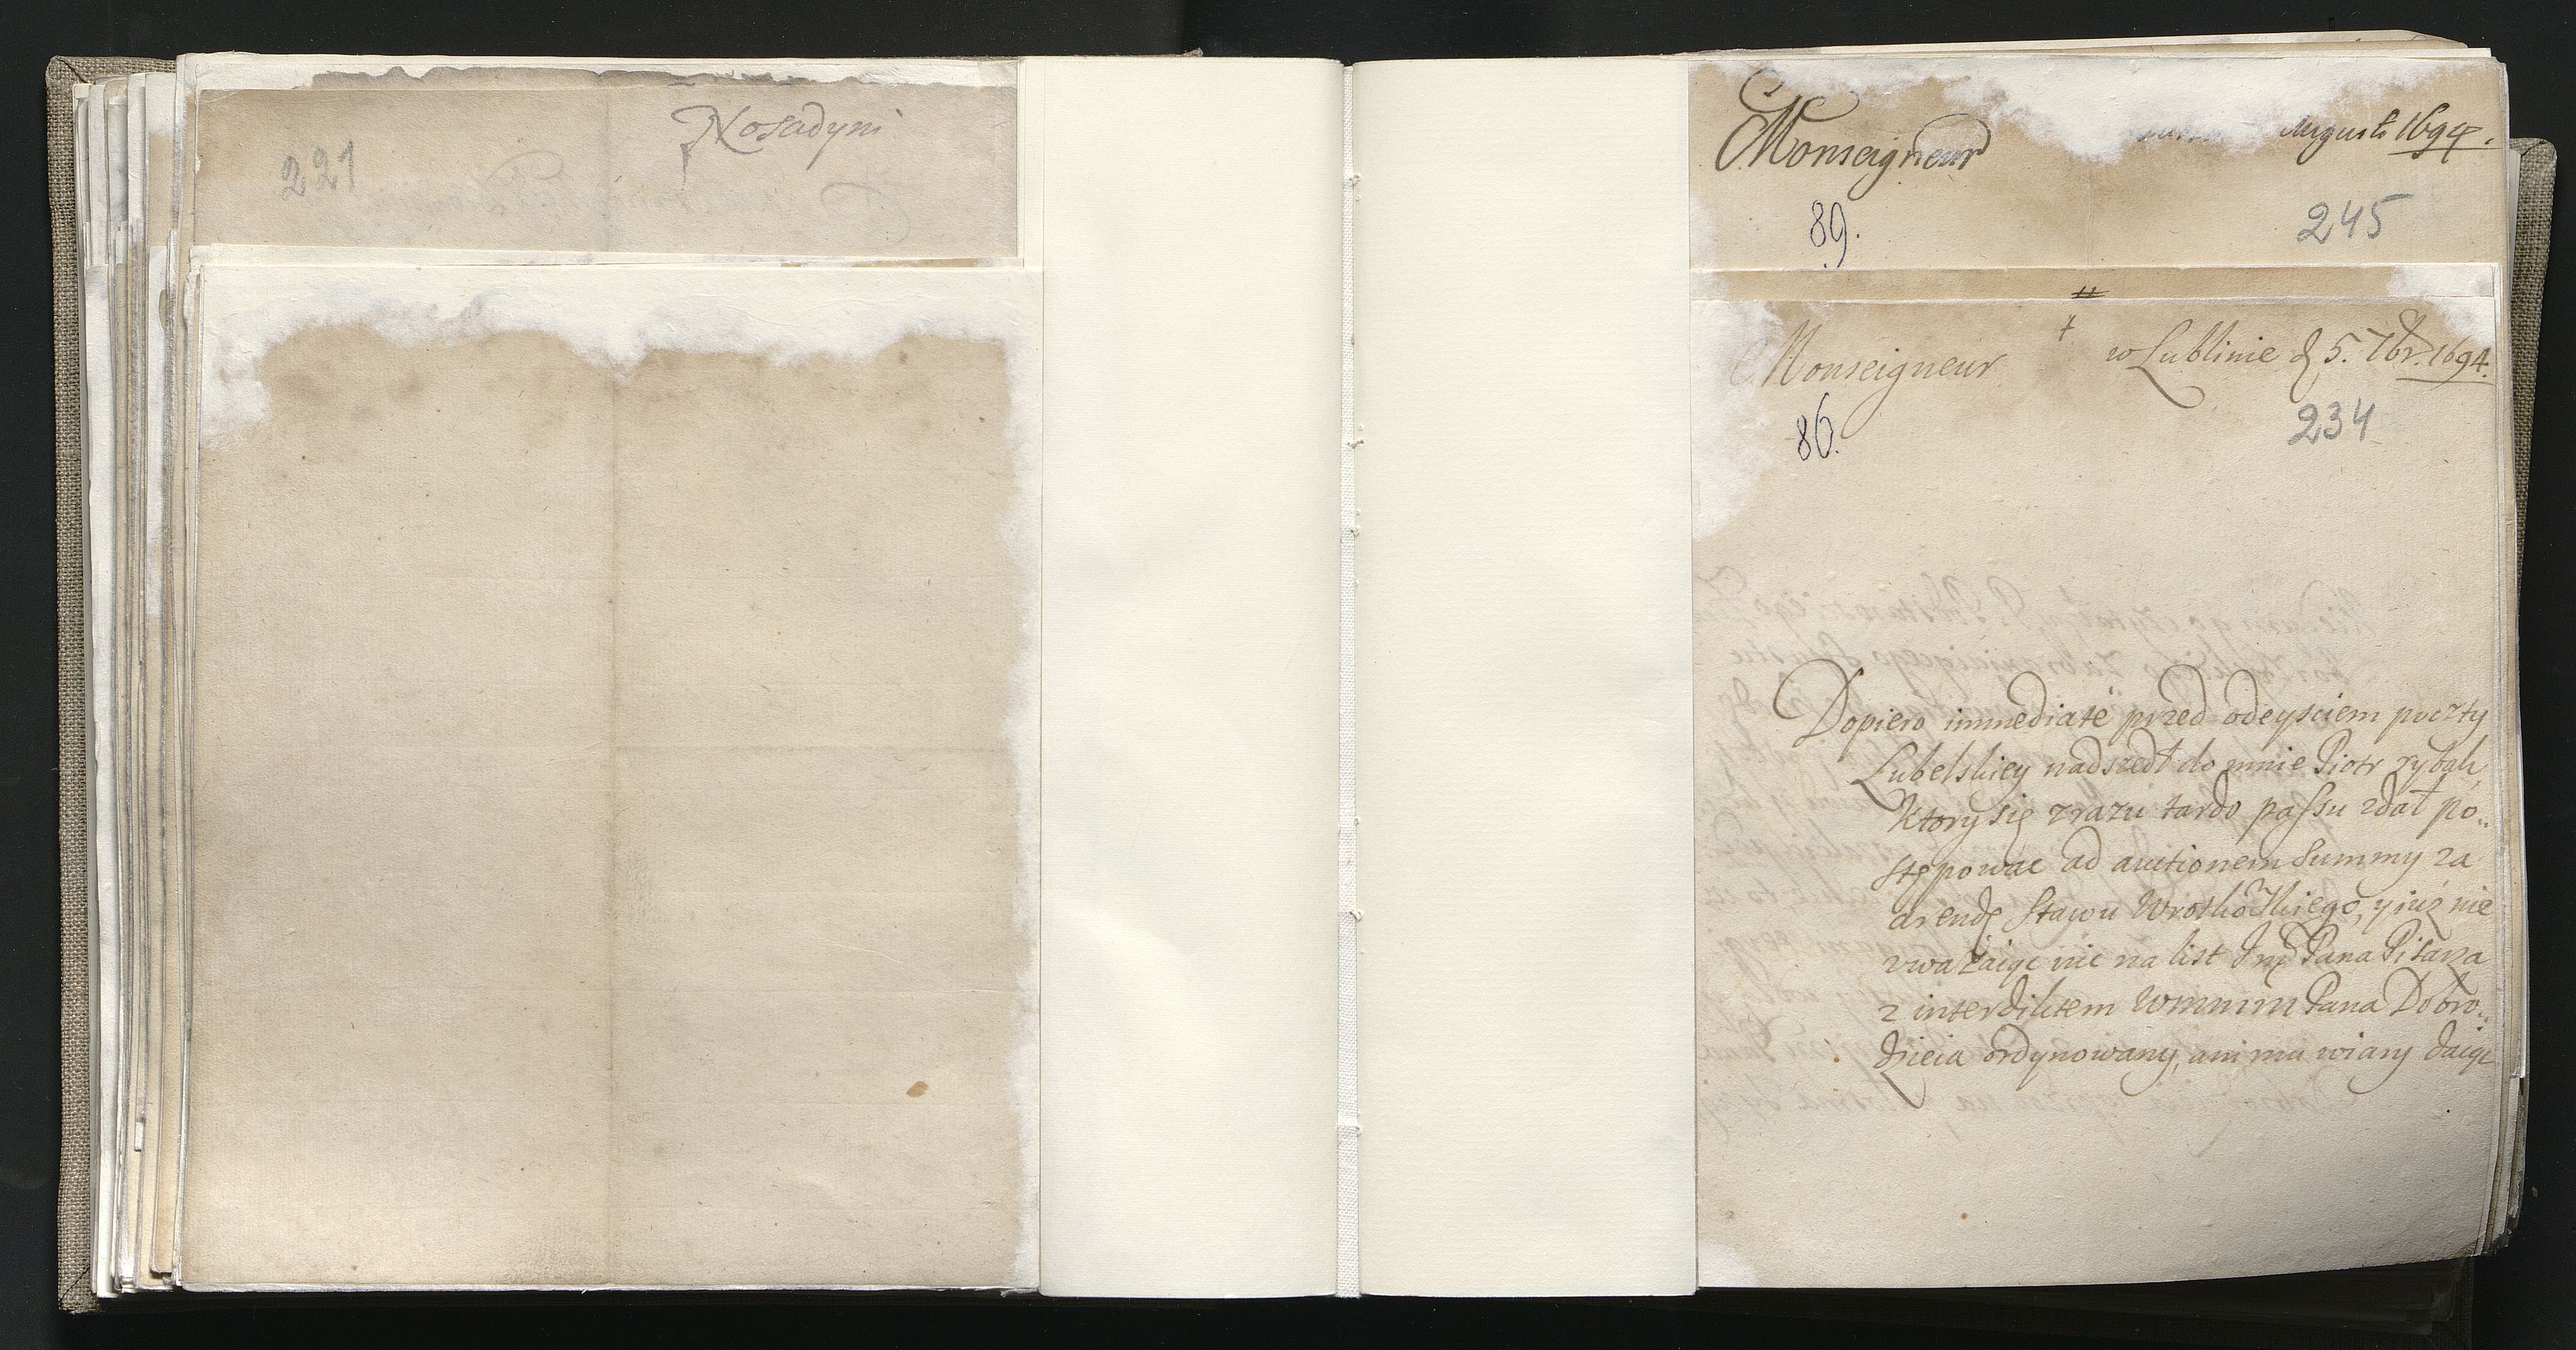 Nosadyni
221
Monseigneur
Augusti 1694.
89.
245
Monseigneur
w Lublinie d 5. 7br. 1694.
86.
234
Dopiero immediate przed odeysciem poczty
Lubelskiey nadszedł do mnie Piotr rybak,
ktory się zrazu tardo passu zdał po..
stępowac ad auctionem summy za
arendę stawu Wrotkowskiego, y iuż nie
uważaiąc nic na list Jmę Pana Pisarza
z interdiktem WMMM Pana Dobro..
dzieia ordynowany, ani mu wiary daiąc